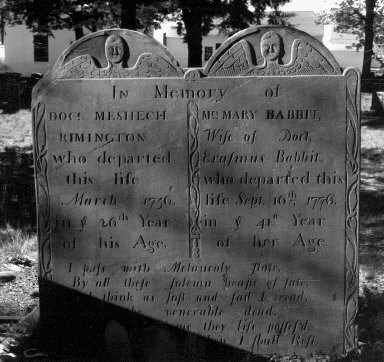 In Memory of
DOCt. MESHECH
RIMINGTON
who departed
this life
March 1756.
in ẏ 26th Year
of his Age.
Mrs. MARY BABBIT,
Wife of Doct.
Erasmus Babbit.
who departed this
life Sept. 16th 1776.
in ẏ 41st Year
of her Age.
I pass with Melancoly state,
By all these solemn heaps of fate,
think as soft and sad I tread,
venerable dead,
me they life possess'd
I shall Rest